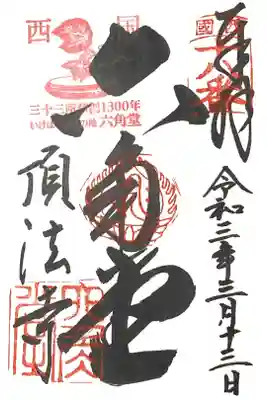 奉拝
西國
十八番
令和三年三月十三日
六角堂
西国
三十三所草創1300年
いけばな発祥の地 六角堂
頂法寺